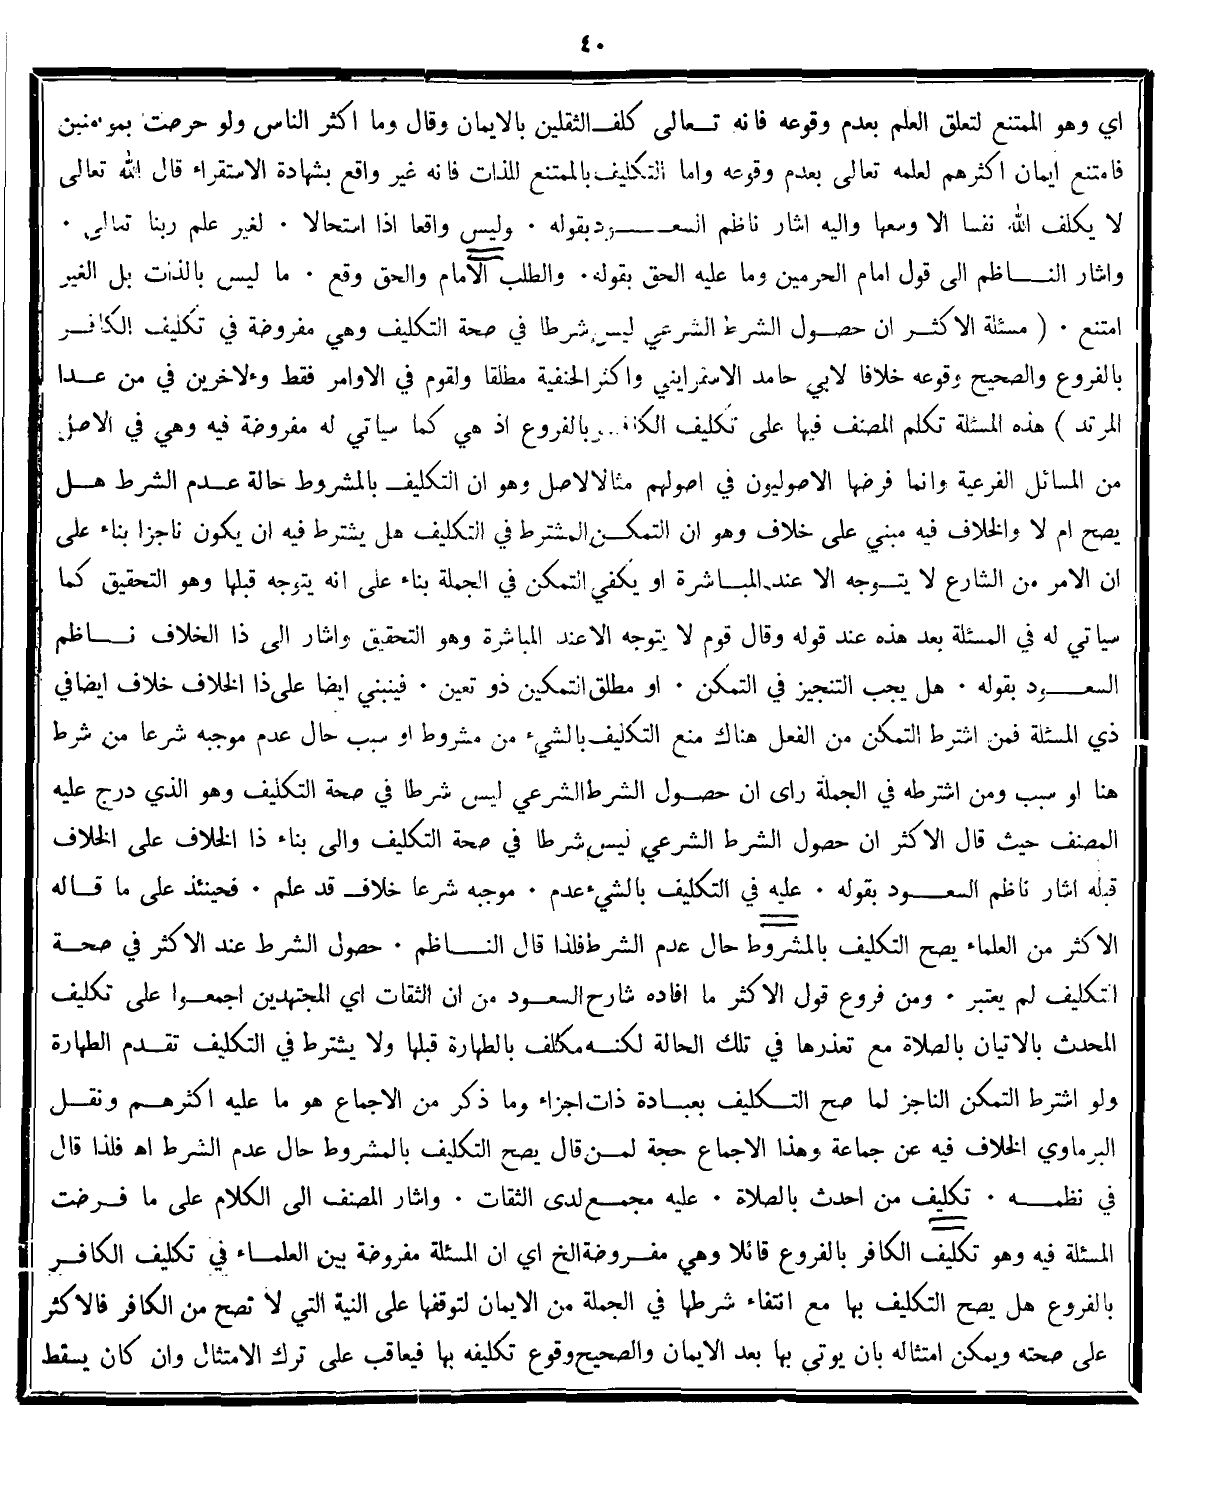 ٤٠
اي وهو الممتنع لتعلق العلم بعدم وقوعه فانه تعالى كلف الثقلين بالايمان وقال وما اكثر الناس ولو حرصت بمومنين
فامتنع ايمان اكثرهم لعلمه تعالى بعدم وقوعه واما التكليف بالممتنع للذات فانه غير واقع بشهادة الاستقراء قال الله تعالى
لا يكلف الله نفسا الا وسعها واليه اشار ناظم السعود بقوله ٠ وليس واقعا اذا استحالا ٠ لغير علم ربنا تعالى ٠
واشار الناظم الى قول امام الحرمين وما عليه الحق بقوله ٠ والطلب الامام والحق وقع ٠ ما ليس بالذات بل الغير
امتنع ٠ ( مسئلة الاكثر ان حصول الشرط الشرعي ليس شرطا في صحة التكليف وهي مفروضة في تكليف الكافر
بالفروع والصحيح وقوعه خلافا لابي حامد الاسفرايني واكثر الحنفية مطلقا ولقوم في الاوامر فقط ولاخرين في من عدا
المرتد ) هذه المسئلة تكلم المصنف فيها على تكليف الكافر بالفروع اذ هي كما سياتي له مفروضة فيه وهي في الاصل
من المسائل الفرعية وانما فرضها الاصوليون في اصولهم مثالا لاصل وهو ان التكليف بالمشروط حالة عدم الشرط هل
يصح ام لا والخلاف فيه مبني على خلاف وهو ان التمكن المشترط في التكليف هل يشترط فيه ان يكون ناجزا بناء على
ان الامر من الشارع لا يتوجه الا عند المباشرة او يكفي التمكن في الجملة بناء على انه يتوجه قبلها وهو التحقيق كما
سياتي له في المسئلة بعد هذه عند قوله وقال قوم لا يتوجه الا عند المباشرة وهو التحقيق واشار الى ذا الخلاف ناظم
السعود بقوله ٠ هل يجب التنجيز في التمكن ٠ او مطلق التمكين ذو تعين ٠ فينبني ايضا على ذا الخلاف خلاف ايضا في
ذي المسئلة فمن اشترط التمكن من الفعل هناك منع التكليف بالشيء من مشروط او سبب حال عدم موجبه شرعا من شرط
هنا او سبب ومن اشترطه في الجملة راى ان حصول الشرط الشرعي ليس شرطا في صحة التكليف وهو الذي درج عليه
المصنف حيث قال الاكثر ان حصول الشرط الشرعي ليس شرطا في صحة التكليف والى بناء ذا الخلاف على الخلاف
قبله اشار ناظم السعود بقوله ٠ عليه في التكليف بالشيء عدم ٠ موجبه شرعا خلاف قد علم ٠ فحينئذ على ما قاله
الاكثر من العلماء يصح التكليف بالمشروط حال عدم الشرط فلذا قال الناظم ٠ حصول الشرط عند الاكثر في صحة
التكليف لم يعتبر ٠ ومن فروع قول الاكثر ما افاده شارح السعود من ان الثقات اي المجتهدين اجمعوا على تكليف
المحدث بالاتيان بالصلاة مع تعذرها في تلك الحالة لكنه مكلف بالطهارة قبلها ولا يشترط في التكليف تقدم الطهارة
ولو اشترط التمكن الناجز لما صح التكليف بعبادة ذات اجزاء وما ذكر من الاجماع هو ما عليه اكثرهم ونقل
البرماوي الخلاف فيه عن جماعة وهذا الاجماع حجة لمن قال يصح التكليف بالمشروط حال عدم الشرط اه فلذا قال
في نظمه ٠ تكليف من احدث بالصلاة ٠ عليه مجمع لدى الثقات ٠ واشار المصنف الى الكلام على ما فرضت
المسئلة فيه وهو تكليف الكافر بالفروع قائلا وهي مفروضة الخ اي ان المسئلة مفروضة بين العلماء في تكليف الكافر
بالفروع هل يصح التكليف بها مع انتفاء شرطها في الجملة من الايمان لتوقفها على النية التي لا تصح من الكافر فالاكثر
على صحته ويمكن امتثاله بان يوتي بها بعد الايمان والصحيح وقوع تكليفه بها فيعاقب على ترك الامتثال وان كان يسقط